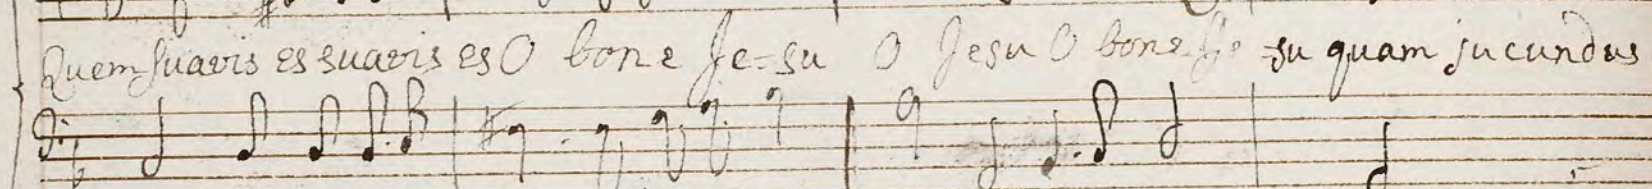 Quem suavis es suavis es O bone Je-su O Jesu O bone Je-su quam jucundus